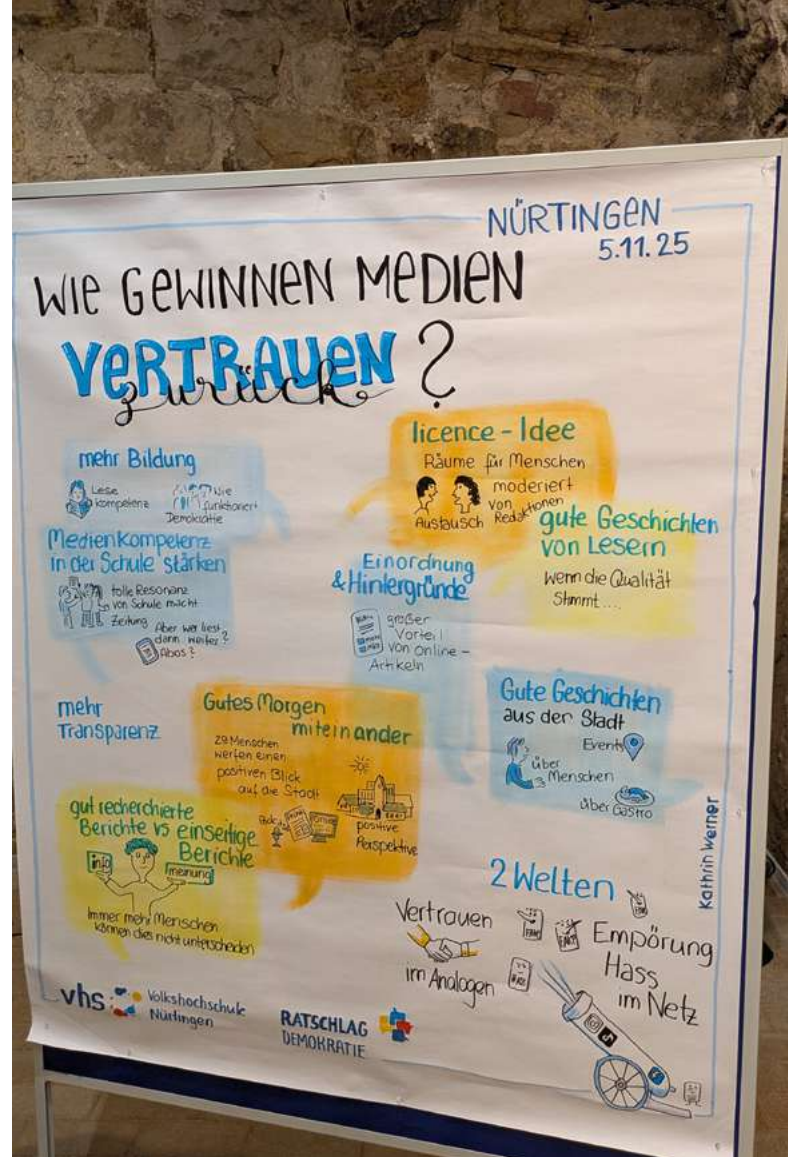 NÜRTINGEN
5.11.25
WIE GEWINNEN MEDIEN
VERTRAUEN
zurück ?
mehr Bildung
Lese
kompetenz
Wie
funktioniert
Demokratie
Medienkompetenz
in der Schule stärken
tolle Resonanz
von Schule macht
Zeitung
Aber wer liest
dann weiter?
Abos?
mehr
Transparenz
licence - Idee
Räume für Menschen
moderiert
von
Redaktionen
Austausch
gute Geschichten
von Lesern
Wenn die Qualität
Stimmt....
Einordnung
& Hintergründe
großer
Vorteil
von online -
Artikeln
Gutes Morgen
miteinander
28 Menschen
werfen einen
positiven Blick
auf die Stadt
positive
Perspektive
Gute Geschichten
aus der Stadt
Events
über
Menschen
über Gastro
gut recherchierte
Berichte vs einseitige
Berichte
info
meinung
Immer mehr Menschen
können dies nicht unterscheiden
2 Welten
Vertrauen
im Analogen
Empörung
Hass
im Netz
Kathrin Werner
vhs
Volkshochschule
Nürtingen
RATSCHLAG
DEMOKRATIE